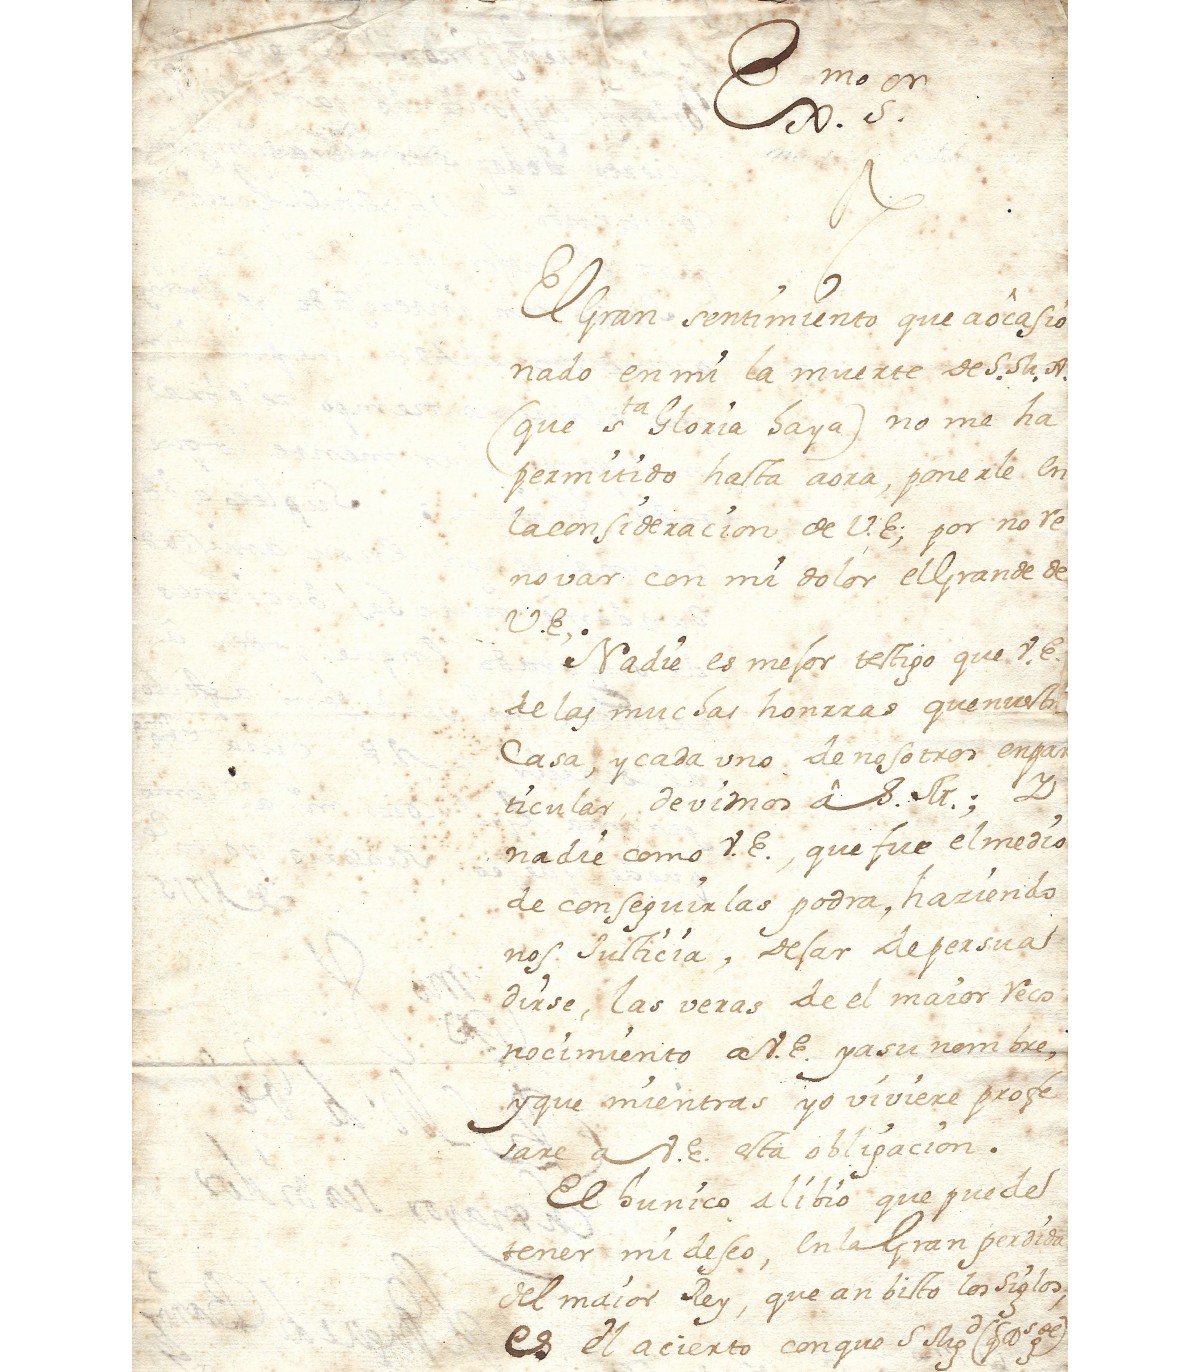 Ex.mo S.or
El Gran sentimiento que aôcasio
nado en mi la muerte de S. M.
(que s.ta Gloria haya) no me ha
permitido hasta aora, ponerle en
la consideracion de V.E; por no re
novar con mi dolor el Grande de
V.E.
Nadie es mejor testigo que V.E.
de las muchas honrras que nuestra
Casa, y cada uno de nosotros en par
ticular, devimos â S. M.; Y
nadie como V.E., que fue el medio
de conseguirlas podra, haziendo
nos Justicia, dejar de persua
dirse, las veras de el maior reco
nocimiento a V.E. y a su nombre,
y que mientras yo viviere profe
sare a V.E. esta obligacion.
El hunico alibio que puede
tener mi deseo, en la Gran perdida
del maior Rey, que an bisto los siglos,
es el acierto con que S Mg.d (q Ds g.de)